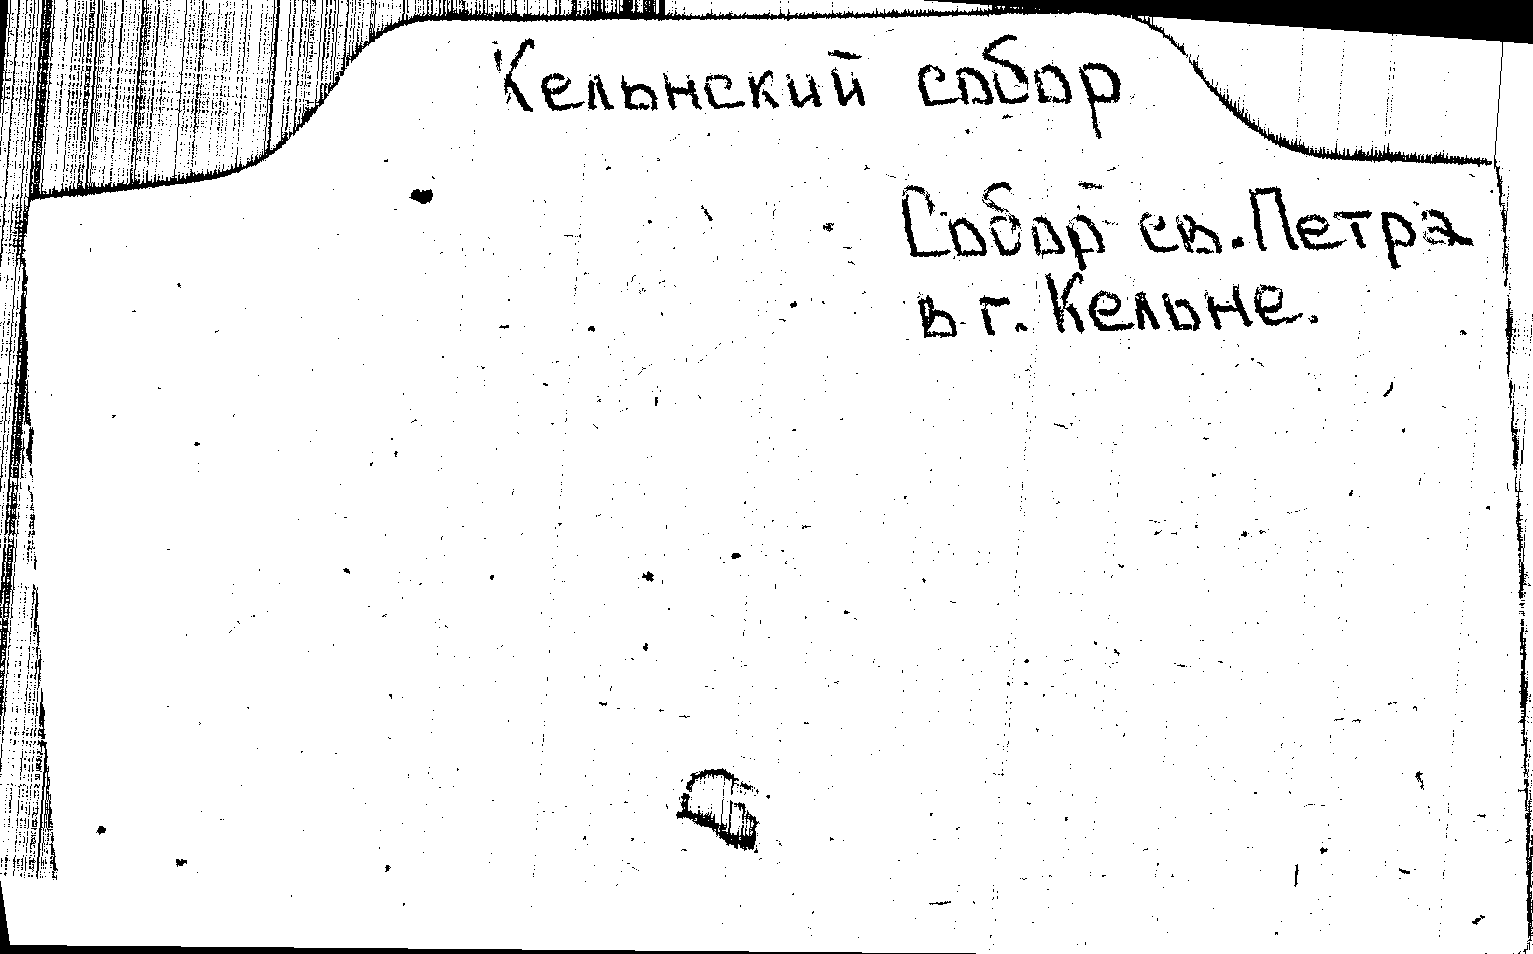 Кельнский собор
Собор св. Петра
в г. Кельне.